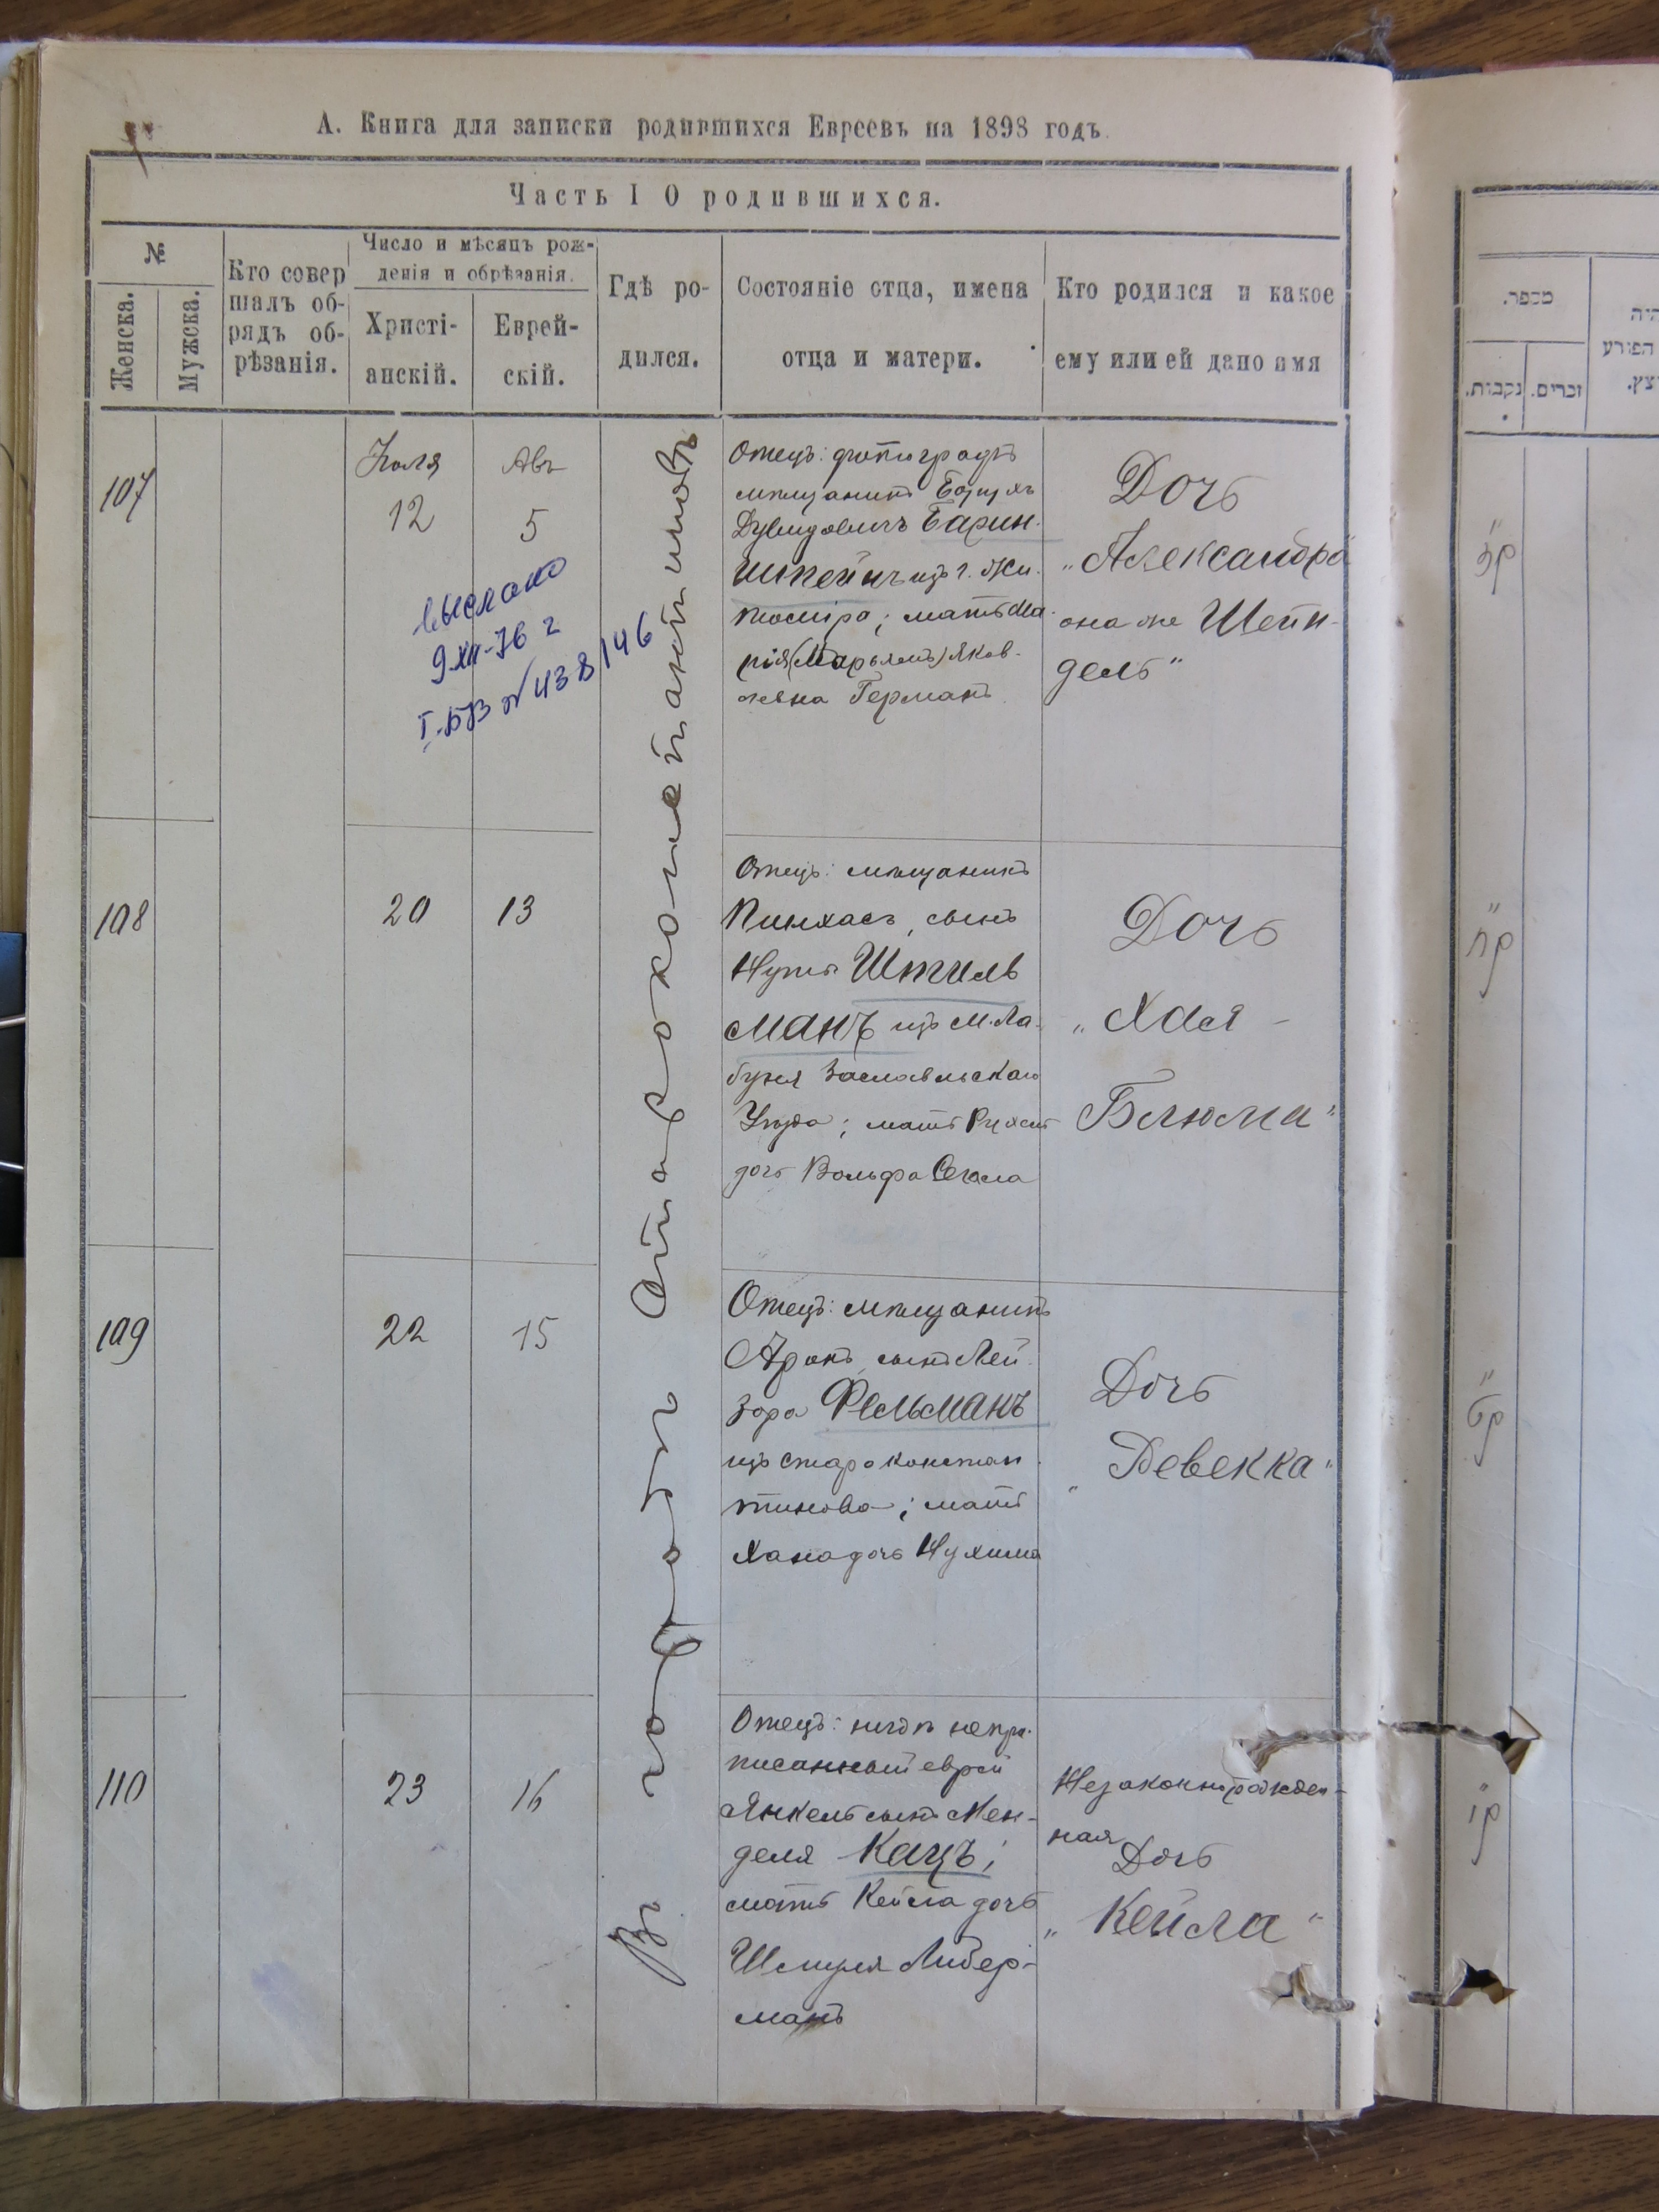 А. Книга для записки родившихся Евреевъ на 1898 годъ.
Часть I О родившихся.
№
Женска.
Мужска.
Кто совер
шалъ об-
рядъ об-
рѣзанія.
Число и мѣсяцъ рож-
денія и обрѣзанія.
Христі-
анскій.
Еврей-
скій.
Гдѣ ро-
дился.
Состояніе отца, имена
отца и матери.
Кто родился и какое
ему или ей дано имя
Въ городѣ Староконстантиновѣ
107
Іюля
12
Авъ
5
выслано
9 XII-76 г
I-БВ № 438146
Отецъ: фотографъ
мѣщанинъ
Дувидовичъ Барин-
штейнъ изъ г. Жи-
томіра; мать Ма-
рія (Марьямъ) Яков-
левна Германъ
Дочь
„Александра
она же Шейн-
дель"
108
20
13
Отецъ: мѣщанинъ
Пинхасъ, сынъ
Нута Штиль
манъ изъ м. Ла-
буня Заславльскаго
Уѣзда; мать Рухель
дочь Вольфа Сегала
Дочь
„Хая-
Блюма"
109
22
15
Отецъ: мѣщанинъ
Аронъ, сынъ Лей-
зора Фельманъ
изъ Староконстан-
тинова; мать
Хана дочь Нухима
Дочь
„Ревекка"
110
23
16
Отецъ: нигдѣ непри-
писанный еврей
Янкель сынъ Мен-
деля Кацъ;
мать Кейла дочь
Шмуля Либер-
манъ
Незаконнорожден-
ная Дочь
„Кейла"
מספר.
נקבות.
זכרים.
היה
הפורע
קז
קח
קט
קי